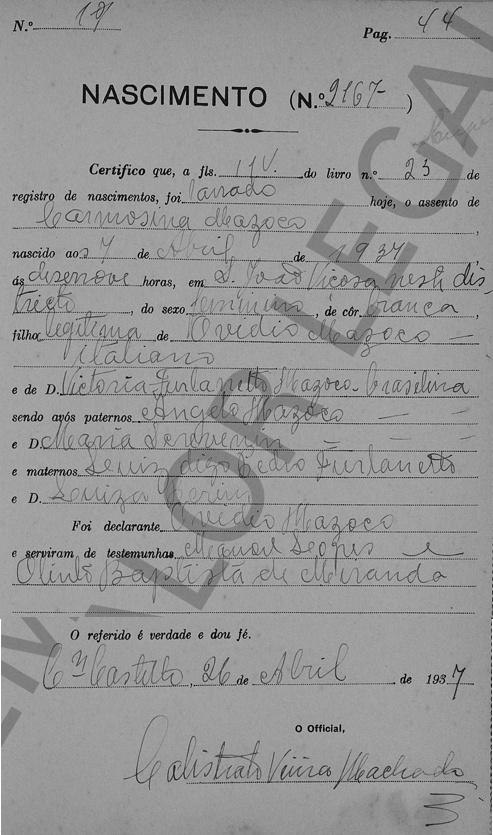 N.º 19
Pag. 44
NASCIMENTO (N.º 2167-)
Certifico que, a fls. 11V. do livro n.º 23 de
registro de nascimentos, foi lavrado hoje, o assento de
Carmosina Mazoco,
nascido aos 7 de Abril de 1937,
ás disenove horas, em S. João Viçosa nesti dis-
tricto, do sexo feminino, de côr branca,
filho legitima de Ovidio Mazoco —
italiano
e de D. Victoria Furlanetto Mazoco- brasileira
sendo avós paternos Angelo Mazoco — —
e D. Maria — — —
e maternos Luiz digo Pedro Furlanetto
e D. Luiza
Foi declarante Ovidio Mazoco
e serviram de testemunhas Manoel e
Olinto Baptista de Miranda
O referido é verdade e dou fé.
Castello, 26 de Abril de 1937
O Official,
Calistrato Vieira Machado
SEM VALOR LEGAL